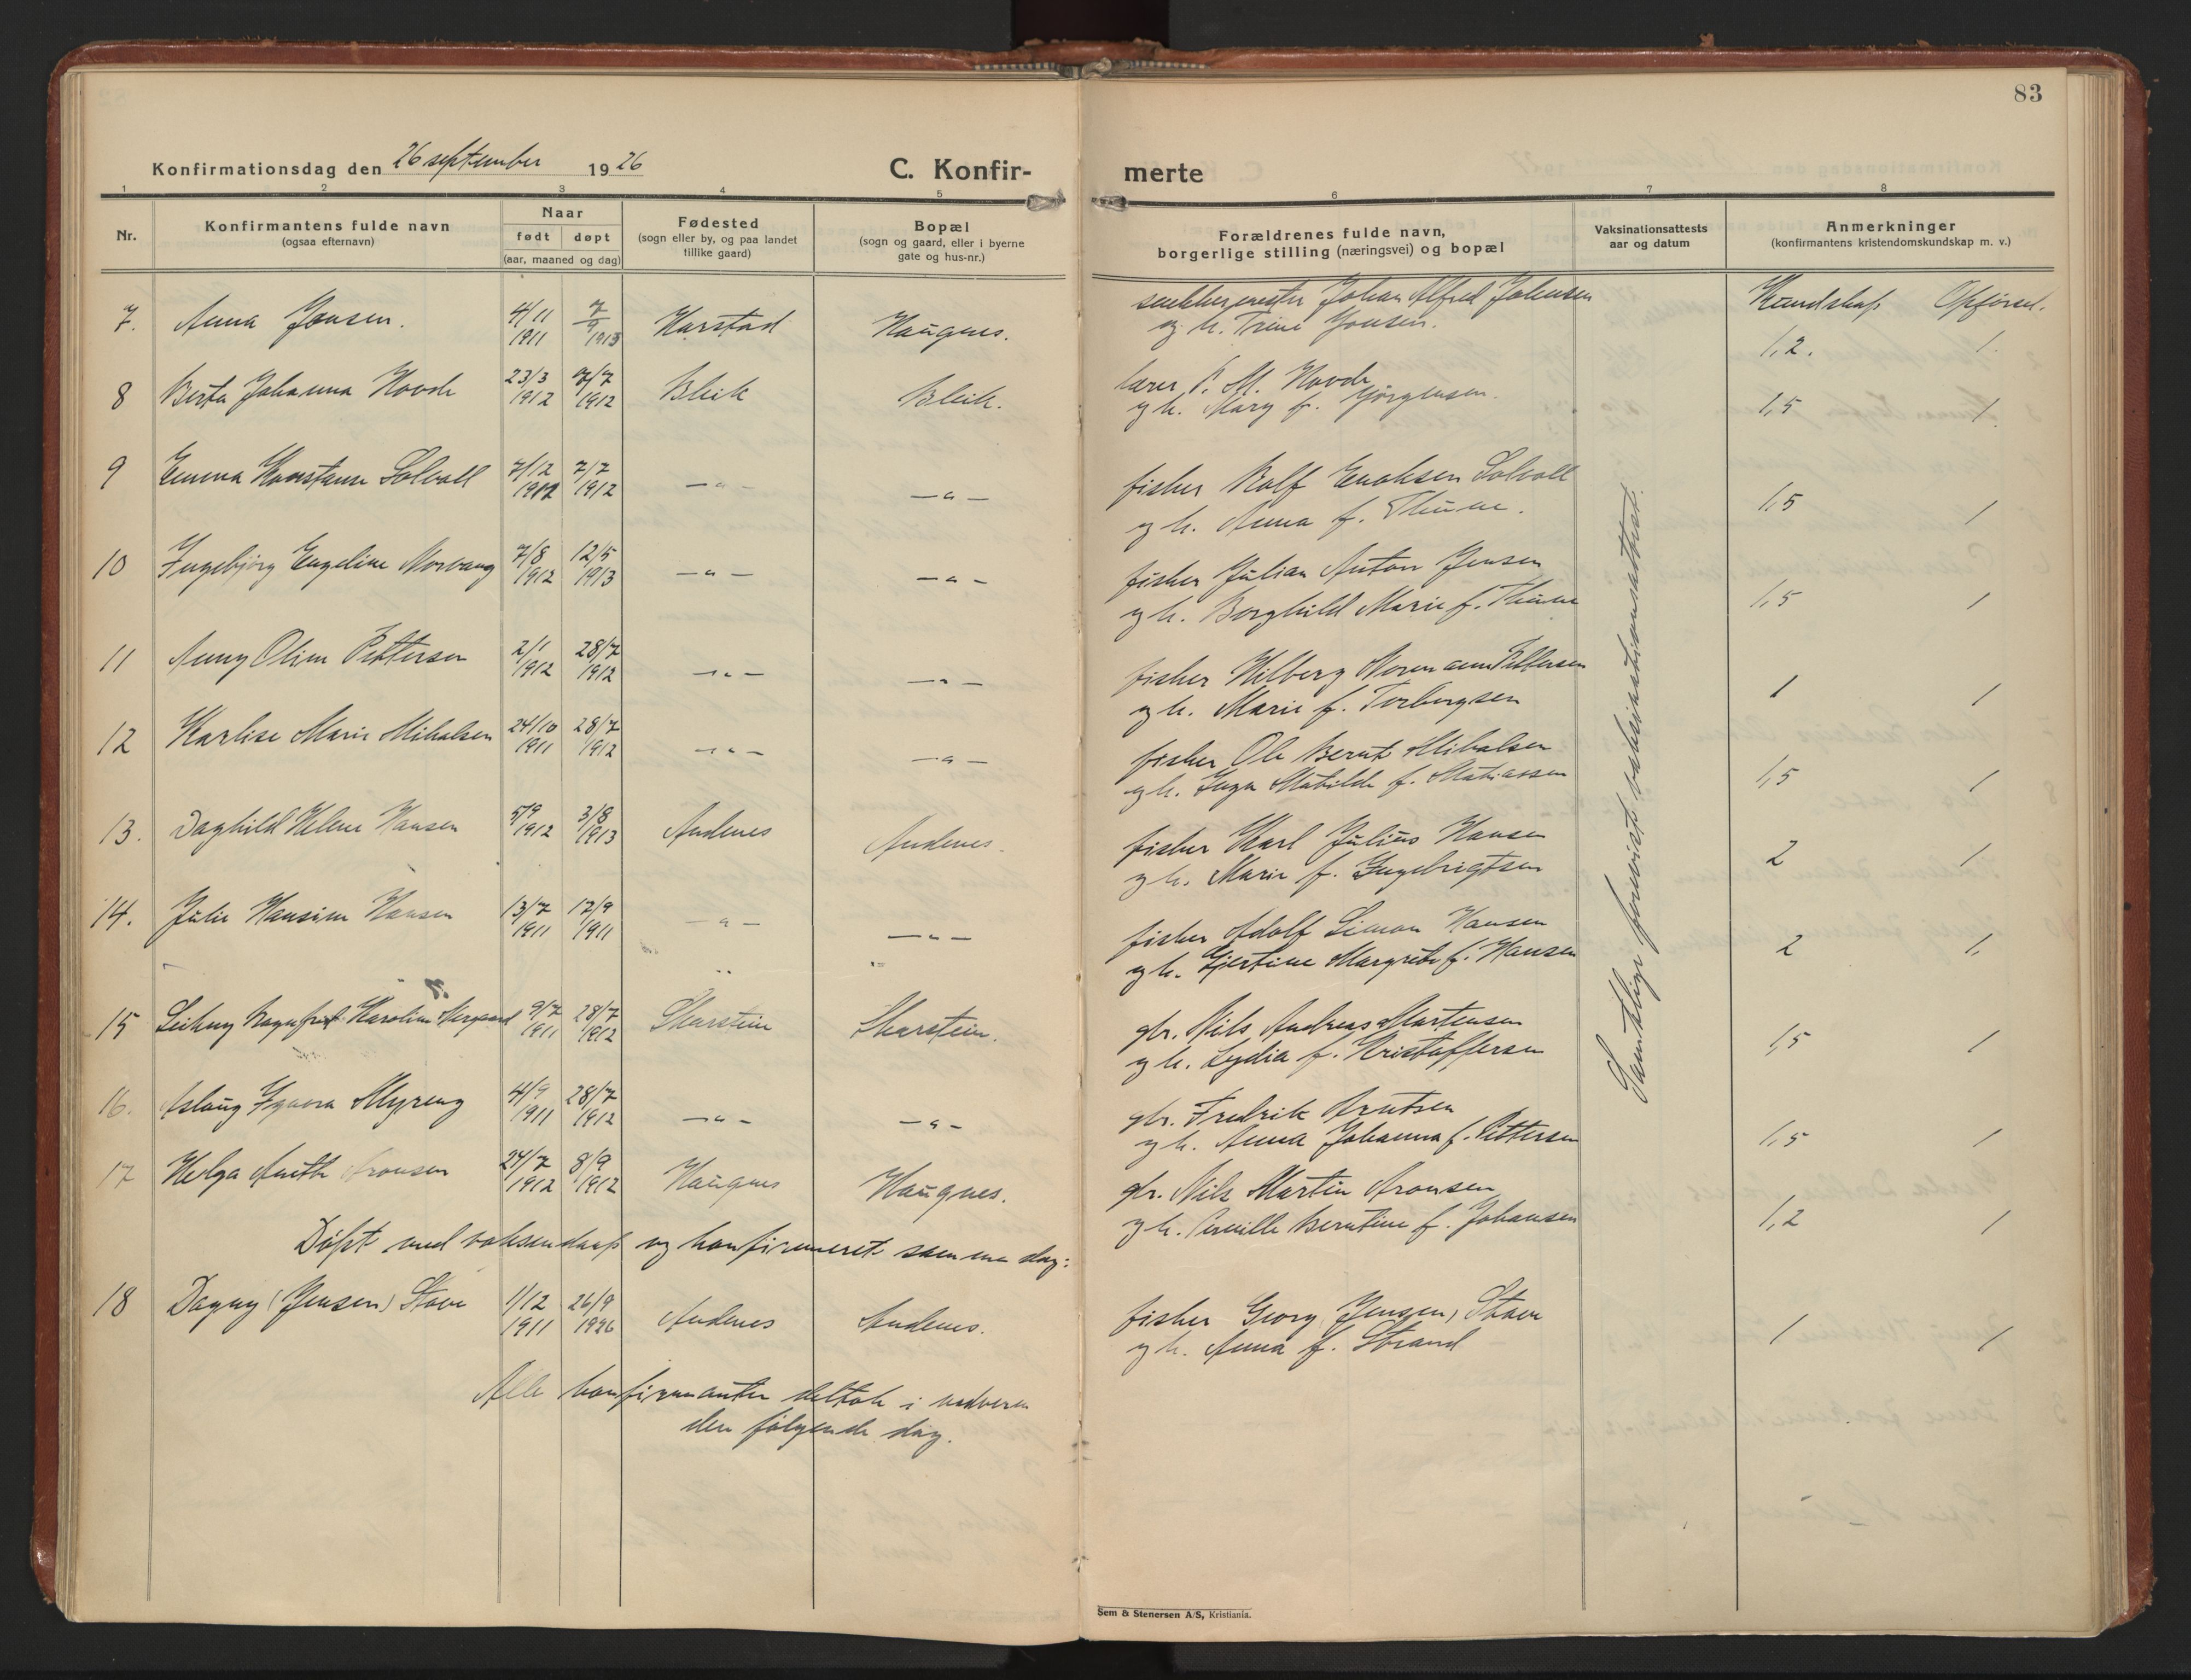 83
Konfirmationsdag den 26 september 1926
C. Konfir-
merte
1 2 3 4 5 6 7 8
Nr.
Konfirmantens fulde navn
(ogsaa efternavn)
Naar
født døpt
(aar, maaned og dag)
Fødested
(sogn eller by, og paa landet
tillike gaard)
Bopæl
(sogn og gaard, eller i byerne
gate og hus-nr.)
Forældrenes fulde navn,
borgerlige stilling (næringsvei) og bopæl
Vaksinationsattests
aar og datum
Anmerkninger
(konfirmantens kristendomskundskap m. v.)
Kundskap Opførsel.
7. Anna Jensen. 4/11 1911 7/9 1913 Harstad Haugnes. Johan Alfred Johansen
og h. Trine Jonsen. 1,2. 1.
8 Berta Johanna Hovde 23/3 1912 7/7 1912 Bleik Bleik. lærer P. M. Hovde
og h. Mary f. Jørgensen. 1,5 1.
9 Emma Konstanse Solvoll 7/12 1912 7/7 1912 —"— —"— fisker Rolf Enoksen Solvoll
og h. Anna f. Thune. 1,5 1
10 Ingebjørg Engeline Norvang 7/8 1912 12/5 1913 —"— —"— fisker Julian Anton Jensen
og h. Borghild Marie f. Thune 1,5 1
11 Anny Oline Pettersen 2/1 1912 28/7 1912 —"— —"— fisker Hilberg Normann Pettersen
og h. Marie f. Torbergsen 1 1
12 Karlise Marie Mikalsen 24/10 1911 28/7 1912 —"— —"— fisker Ole Bernt Mikalsen
og h. Inga Matilde f. Matiassen 1,5 1
13. Daghild Helene Hansen 5/9 1912 3/8 1913 Andenes Andenes. fisker Karl Julius Hansen
og h. Marie f. Ingebrigtsen 2 1
14. Julie Hansine Hansen 13/7 1911 17/9 1911 —"— —"— fisker Adolf Simon Hansen
og h. Gjertine Margrete f. Hansen 2 1.
15 Ragnfrid Karoline 9/7 1911 28/7 1912 Skarstein Skarstein. gbr. Nils Andreas Martensen
og h. Lydia f. Kristoffersen 1,5 1
16. Aslaug Myreng 4/9 1911 28/7 1912 —"— —"— gbr. Fredrik Arntsen
og h. Anna Johanna f. Pettersen 1,5 1
17 Helga Anethe Aronsen 24/7 1912 8/9 1912 Haugnes Haugnes. gbr. Nils Martin Aronsen
og h. Pernille Berntine f. Johansen 1,2 1
Døpt med voksendaap og konfirmeret samme dag:
18 Dagny (Jensen) Stave 1/12 1911 26/9 1926 Andenes Andenes. fisker Georg (Jensen) Stave
og h. Anna f. Strand 1 1
Alle konfirmanter deltok i nadveren
den følgende dag.
Samtlige forevist vaksinationsattest.
Sem & Stenersen A/S, Kristiania.